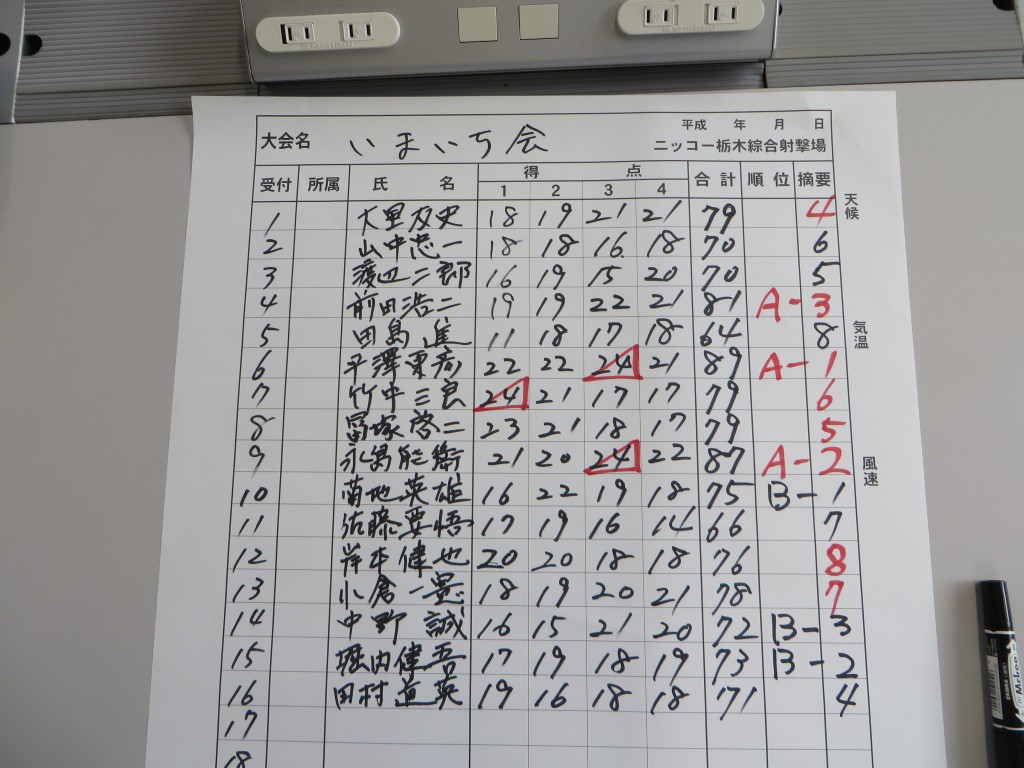 平成 年 月 日
大会名 いまいち会 ニッコー栃木綜合射撃場
受付 所属 氏名 得点 合計 順位 摘要
1 2 3 4
天候
1 大里友史 18 19 21 21 79 4
2 山中忠一 18 18 16 18 70 6
3 渡辺二郎 16 19 15 20 70 5
4 前田浩二 19 19 22 21 81 A-3
気温
5 田島進 11 18 17 18 64 8
6 平澤 22 22 24 21 89 A-1
7 竹中三良 24 21 17 17 79 6
8 冨塚啓二 23 21 18 17 79 5
9 永島能衛 21 20 24 22 87 A-2
風速
10 菊地英雄 16 22 19 18 75 B-1
11 佐藤要悟 17 19 16 14 66 7
12 岸本健也 20 20 18 18 76 8
13 小倉一景 18 19 20 21 78 7
14 中野誠 16 15 21 20 72 B-3
15 堀内健吾 17 19 18 19 73 B-2
16 田村道英 19 16 18 18 71 4
17
18
Mckee